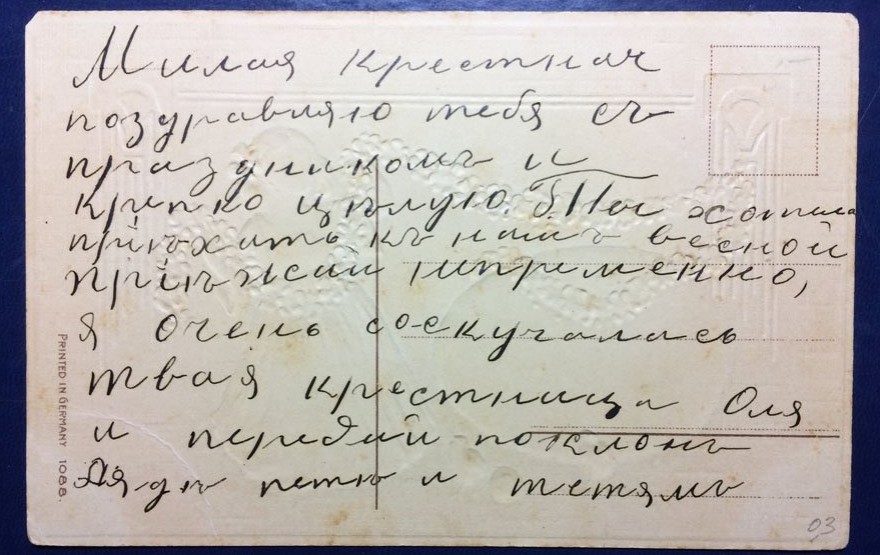 Милая крестная
поздравляю тебя съ
праздникомъ и
крепко цѣлую. Ты хотела
приѣхать къ намъ весной
приѣжай непременно,
я очень соскучалась
твоя крестница Оля
и передай поклонъ
Дядѣ петѣ и тетямъ
PRINTED IN GERMANY 1088.
03